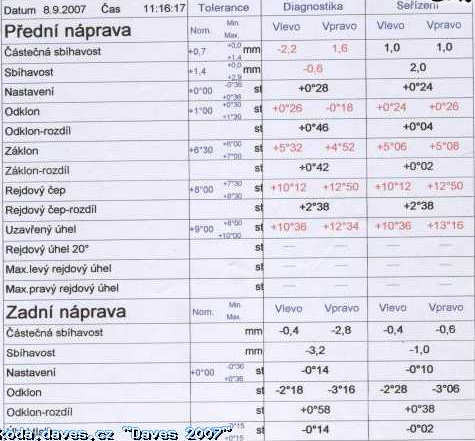 Datum 8.9.2007 Čas 11:16:17 Tolerance Diagnostika Seřízení
Přední náprava Nom. Min. Max. Vlevo Vpravo Vlevo Vpravo
Částečná sbíhavost +0,7 +0,0 +1,4 mm -2,2 1,6 1,0 1,0
Sbíhavost +1,4 +0,0 +2,9 mm -0,6 2,0
Nastavení +0°00 -0°36 +0°36 st +0°28 +0°24
Odklon +1°00 +0°30 +1°30 st +0°26 -0°18 +0°24 +0°26
Odklon-rozdíl st +0°46 +0°04
Záklon +6°30 +6°00 +7°00 st +5°32 +4°52 +5°06 +5°08
Záklon-rozdíl st +0°42 +0°02
Rejdový čep +8°00 +7°30 +8°30 st +10°12 +12°50 +10°12 +12°50
Rejdový čep-rozdíl st +2°38 +2°38
Uzavřený úhel +9°00 +8°00 +10°00 st +10°36 +12°34 +10°36 +13°16
Rejdový úhel 20° st — — — —
Max.levý rejdový úhel st — — — —
Max.pravý rejdový úhel st — — — —
Zadní náprava Nom. Min. Max. Vlevo Vpravo Vlevo Vpravo
Částečná sbíhavost mm -0,4 -2,8 -0,4 -0,6
Sbíhavost mm -3,2 -1,0
Nastavení +0°00 -0°36 +0°36 st -0°14 -0°10
Odklon st -2°18 -3°16 -2°28 -3°06
Odklon-rozdíl st +0°58 +0°38
-0°15 +0°15 st -0°14 -0°02
koda.daves.cz "Daves 2007"